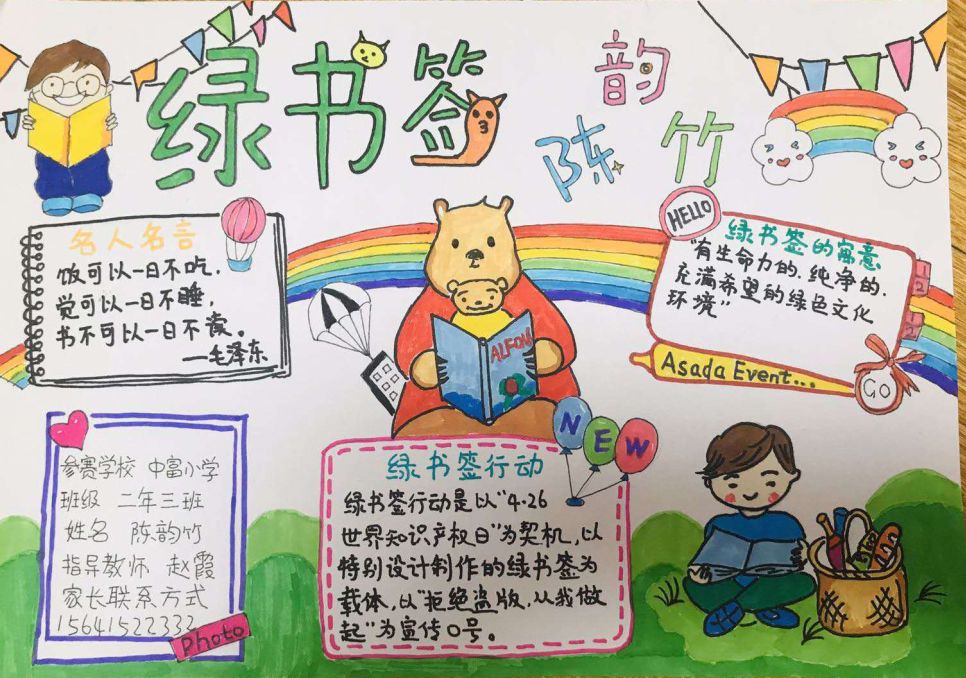 绿书签
陈韵竹
名人名言
饭可以一日不吃,
觉可以一日不睡,
书不可以一日不读。
——毛泽东
ALFONS
HELLO
绿书签的寓意
"有生命力的、纯净的、
充满希望的绿色文化
环境"
Asada Event...
GO
参赛学校 中富小学
班级 二年三班
姓名 陈韵竹
指导教师 赵霞
家长联系方式
15641522332
Photo
NEW
绿书签行动
绿书签行动是以"4·26
世界知识产权日"为契机,以
特别设计制作的绿书签为
载体,以"拒绝盗版,从我做
起"为宣传口号。